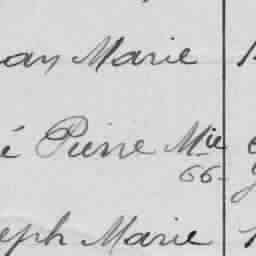 an Marie
é Pierre Mie
66
eph Marie